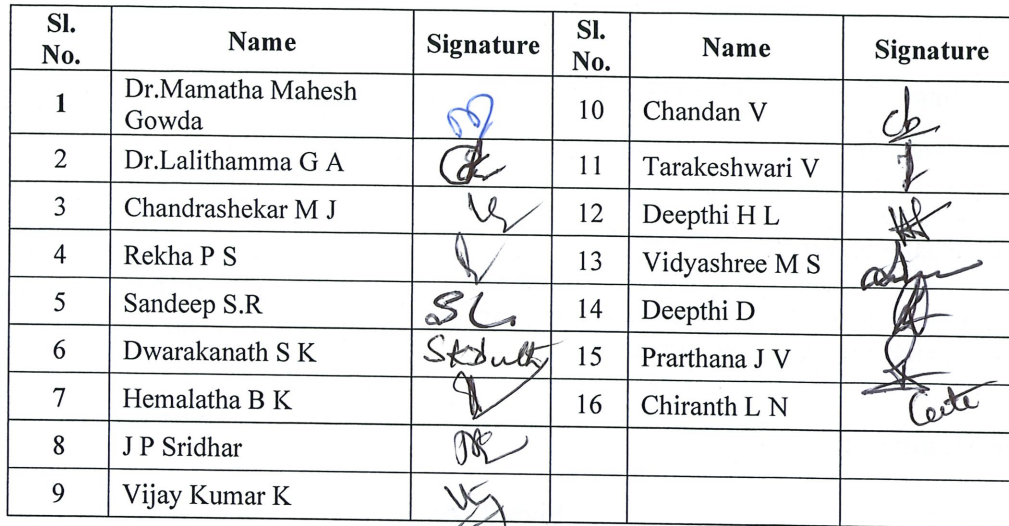 Sl. No. Name Signature Sl. No. Name Signature
1 Dr.Mamatha Mahesh Gowda 10 Chandan V
2 Dr.Lalithamma G A 11 Tarakeshwari V
3 Chandrashekar M J 12 Deepthi H L
4 Rekha P S 13 Vidyashree M S
5 Sandeep S.R 14 Deepthi D
6 Dwarakanath S K 15 Prarthana J V
7 Hemalatha B K 16 Chiranth L N
8 J P Sridhar
9 Vijay Kumar K